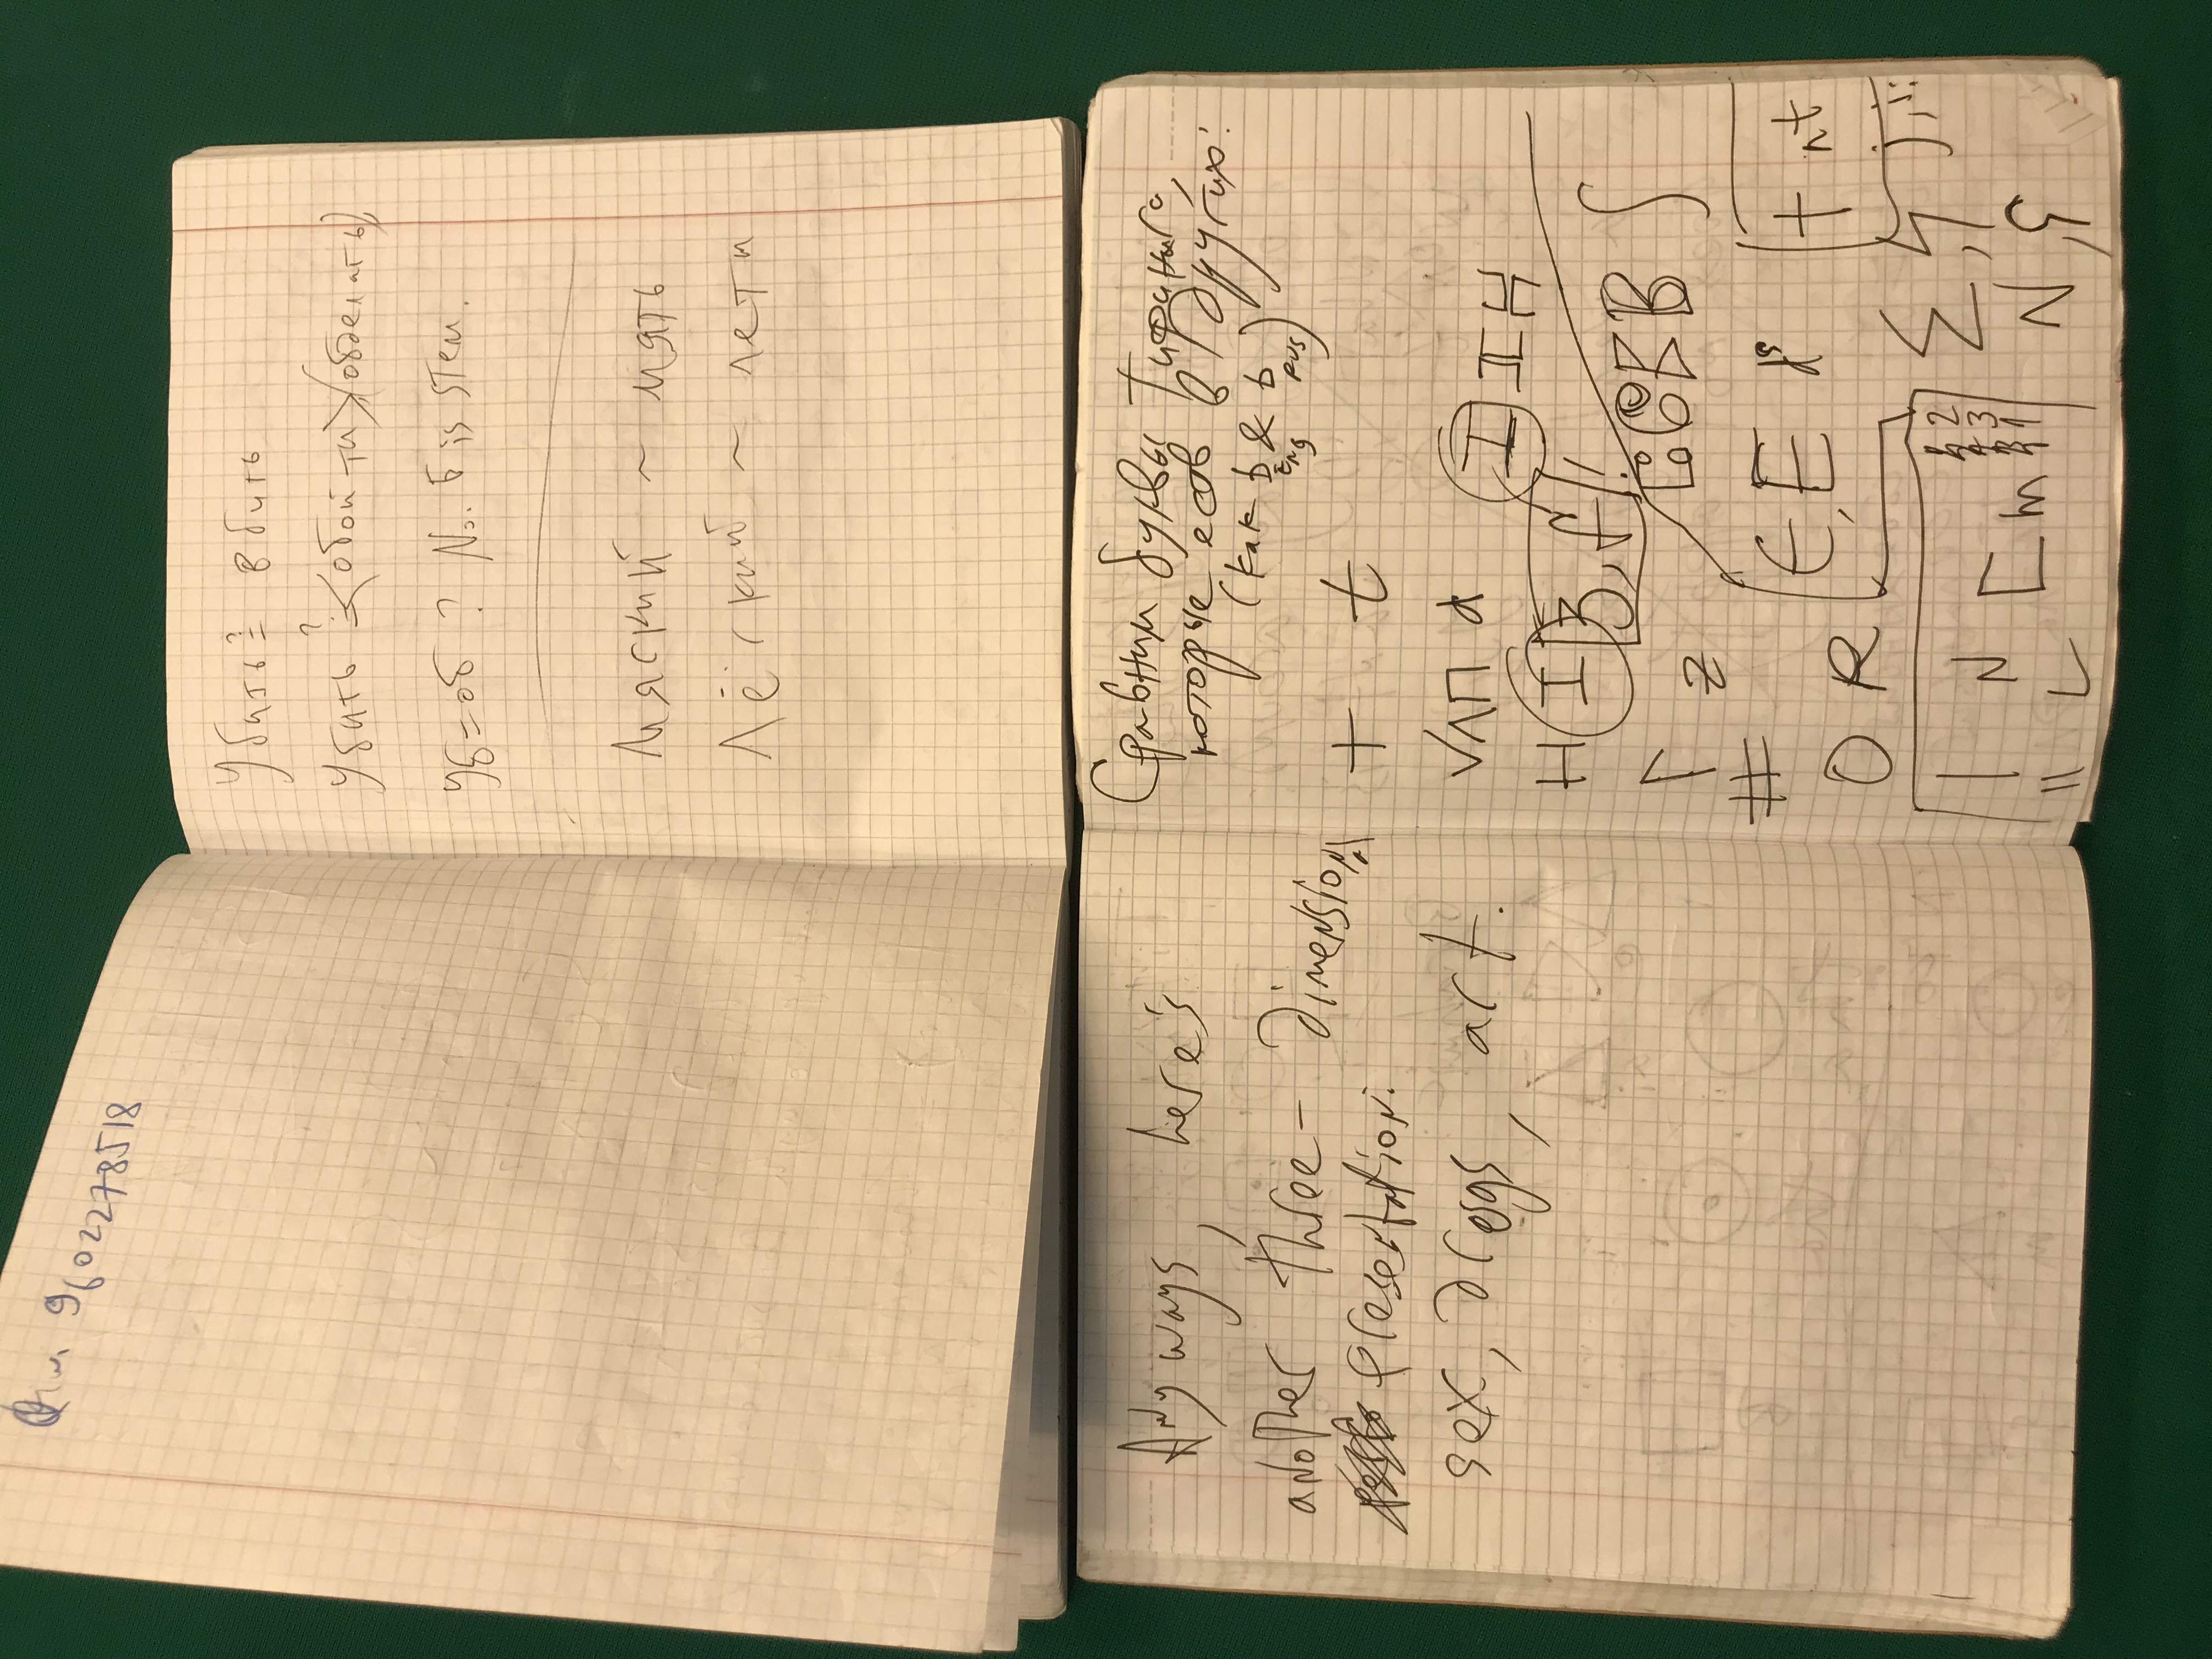 9602278518
Убить ≟ вбить
Убить ≟ <обойти>, (обделать),
Уб=об ? No. Б is stem.
Мяский ~ мять
Лёгкий ~ лети
Anyways, here's
another three-dimensional
presentation:
sex, drogs, art.
Сравним буквы Тифинага,
которые есть в других:
(как b & b)
Eng Rus
+ t
V Λ Π d
I II H
H I З, f !
Г z
B ∫
#
Є, E
+ nt
O R
Σ, j, ji
| N [ m 2
3
1
N, ς
|| L